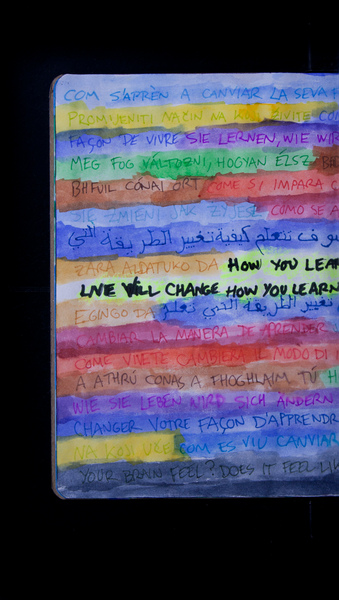 COM S'APRÈN A CANVIAR LA SEVA
PROMIJENITI NAČIN NA KOJI ŽIVITE
FAÇON DE VIVRE SIE LERNEN, WIE WIR
MEG FOG VÁLTOZNI, HOGYAN ÉLSZ
BHFUIL CÓNAÍ ORT COME SI IMPARA
SIĘ ZMIENI JAK ŻYJESZ CÓMO SE A
سوف تتعلم كيفية تغيير الطريقة التي
ZARA ALDATUKO DA HOW YOU LEAR
LIVE WILL CHANGE HOW YOU LEARN
EGINGO DA تغيير الطريقة التي تتعلم
CAMBIAR LA MANERA DE APRENDER
COME VIVETE CAMBIERÀ IL MODO DI
A ATHRÚ CONAS A FHOGHLAIM TÚ
WIE SIE LEBEN WIRD SICH ÄNDERN
CHANGER VOTRE FAÇON D'APPRENDR
NA KOJI COM ES VIU CANVIAR
YOUR BRAIN FEEL? DOES IT FEEL LIK